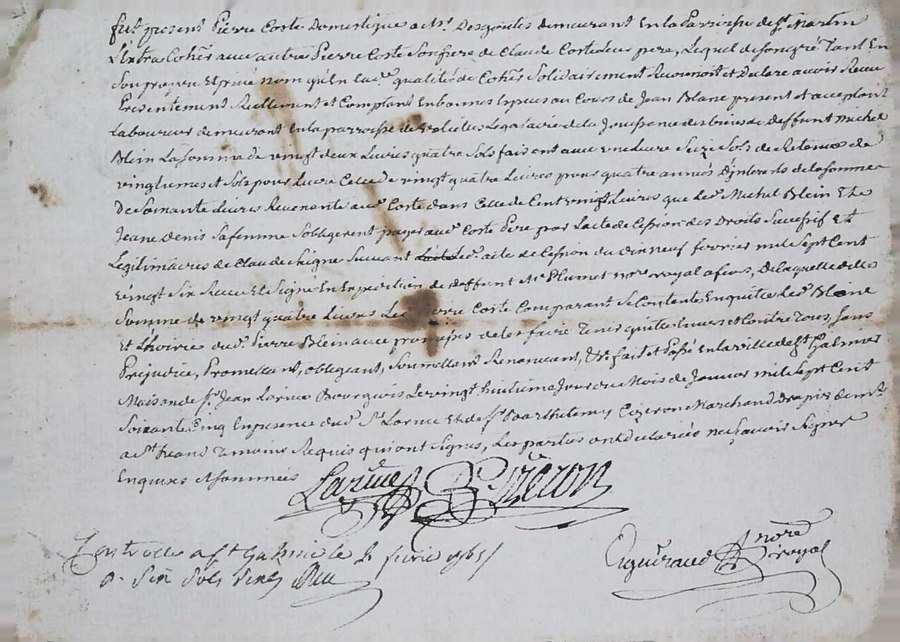 fut present Pierre Coste Domestique a Mr. Desgouttes demeurant En la Parroisse de St. Martin
Lextra Cohers avec autre Pierre Coste Son frere de Claude Coste Leur pere, Lequel de Son gré Tant En
Son propre Et privé nom qu'En lad. qualité de Cohers Solidairement Reconnoit et Declare avoir Receu
Presentement Reellement et Comptant En bonnes Especes au Cours de Jean Blanc present et acceptant
Laboureur demeurant En la parroisse de Legataire de la Jouissance des biens de deffunt Michel
Blein La Somme de vingt deux Livres quatre Sols faisent avec une Livre Seize Sols de Retenues de
vingtiemes et Sols pour Livre Celle de vingt quatre Livres pour quatre années D'interets de la Somme
De Soixante Livres Revenante aud. Coste dans Celle de Cent vingt Livres que Led. Michel Blein Et
Jeane Denis Sa femme S'obligerent payer aud. Coste Pere par Lacte de Cession des Droits Successif Et
Legitimaires de Claude Suivant Led. acte de Cession du Dix neuf fevrier mil Sept Cent
vingt Six Receu Et Signé En Expedition de deffunt Me. Plumet Nore. royal a feurs, De laquelle ditte
Somme de vingt quatre Livres Led. Pierre Coste Comparant Se Contente En quitte Led. Blanc
Et L'hoirie dud. Pierre Blein avec promesses de les faire Tenir quittes Envers et Contre Tous, Sans
Prejudice, Promettant, obligeant, Soumettant Renonceant, &c. fait et Passé En la ville de St. Galmier
Maison de Sr. Jean Larue Bourgeois Le vingt huitieme Jour du Mois de Janvier mil Sept Cent
Soixante Cinq En presence dud. Sr. Larue Et de Sr. Barthelemy Cizeron Marchand Drapier demt.
a St. Temoins Requis qui ont Signés, Les parties ont declarées ne Scavoir Signer
Enquises et Sommées
Larue B. Cizeron
Controllé a St. Galmier le 2 fevrier 1765
R. Six Sols Six den.
Nore.
royal